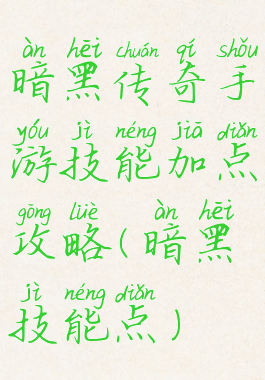 àn hēi chuán qí shǒu
暗黑传奇手
yóu jì néng jiā diǎn
游技能加点
gōng lüè àn hēi
攻略(暗黑
jì néng diǎn
技能点)